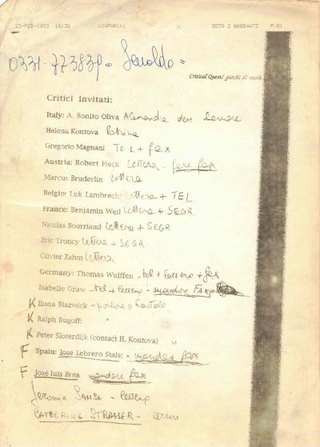 0331-773839 - Senaldo -
Critical Quest: giochi di ruolo
Critici invitati:
Italy: A. Bonito Oliva Alexandra
Helena Kontova
Gregorio Magnani TEL + fax
Austria: Robert Fleck lettera - fare fax
Marcus Bruderlin lettera
Belgio: Luk Lambrecht lettera + TEL
France: Benjamin Weil lettera + SEGR
Nicolas Bourriaud lettera + SEGR
Eric Troncy lettera + SEGR
Olivier Zahm lettera
Germany: Thomas Wulffen - tel + lettera + fax
Isabelle Graw - tel + lettera - mandare Fax
K Iliona Blazwick -
K Ralph Rugoff:
K Peter Sloterdijk (contact H. Kontova)
F Spain: José Lebrero Stals: - mandare fax
F José luis Brea mandare fax
Jerome Sans - lettera
CATHERINE STRASSER -